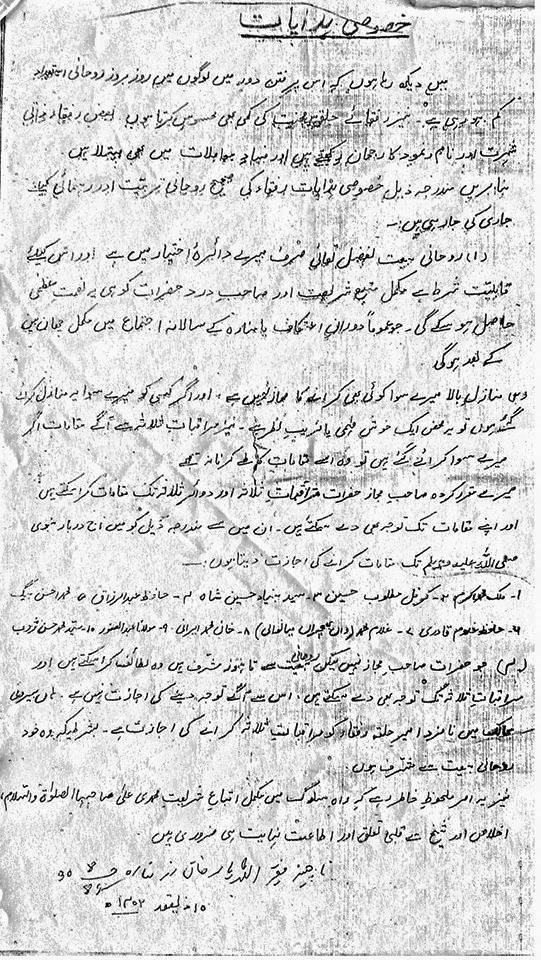 خصوصی ہدایات
میں دیکھ رہا ہوں کہ اس پر فتن دور میں لوگوں میں روز بروز روحانی استعداد
کم ہو رہی ہے۔ میرے رفقائے حلقہ میں بھی کی کمی بھی محسوس کرتا ہوں بعض رفقاء ذاتی
شہرت اور نام و نمود کا رجحان رکھتے ہیں اور مباح معاملات میں بھی مبتلا ہیں۔
بنا بریں مندرجہ ذیل خصوصی ہدایات رفقاء کی صحیح روحانی تربیت اور رہنمائی کیلئے
جاری کی جا رہی ہیں:۔
(۱) روحانی بیعت بفضل تعالیٰ صرف میرے دائرۂ اختیار میں ہے اور اس کیلئے
قابلیت شرط ہے مکمل متبع شریعت اور صاحب درد حضرات کو ہی یہ نعمت عظمیٰ
حاصل ہو سکے گی۔ جو عموماً دوران اعتکاف یا منارہ کے سالانہ اجتماع میں مکمل چھان بین
کے بعد ہوگی
منازل بالا میرے سوا کوئی بھی کرانے کا مجاز نہیں ہے۔ اور اگر کسی کو میرے سوا یہ منازل کرائے
گئے ہوں تو یہ محض ایک خوش فہمی یا فریب نفس ہے۔ نیز مراقبات ثلاثہ سے آگے مقامات اگر
میرے سوا کرائے گئے ہیں تو وہ مقامات
میرے مقرر کردہ صاحب مجاز حضرات مراقبات ثلاثہ اور دوائر ثلاثہ تک مقامات کرا سکتے ہیں
اور اپنے مقامات تک توجہ بھی دے سکتے ہیں۔ ان میں سے مندرجہ ذیل کو میں آج دربار نبوی
صلی اللہ علیہ وسلم تک مقامات کرانے کی اجازت دیتا ہوں:۔
۱۔ ملک محمد اکرم ۲۔ کرنل مطلوب حسین ۳۔ سید بنیاد حسین شاہ ۴۔ حافظ عبدالرزاق ۵۔ محمد احسن بیگ
۶۔ حافظ غلام قادری ۷۔ غلام محمد (واں بھچراں میانوالی) ۸۔ خان محمد ایرانی ۹۔ مولانا عبدالغفور ۱۰۔ سید محمد حسن ژوب
(۴) جو حضرات صاحب مجاز نہیں لیکن روحانی بیعت سے تاہنوز مشرف ہیں وہ لطائف کرا سکتے ہیں اور
مراقبات ثلاثہ تک توجہ بھی دے سکتے ہیں، اس سے آگے توجہ دینے کی اجازت نہیں ہے۔ ہاں بیرونی
ممالک میں نامزد امیر حلقہ رفقاء کو مراقبات ثلاثہ کرانے کی اجازت ہے۔ بشرطیکہ وہ خود
روحانی بیعت سے مشرف ہوں۔
نیز یہ امر ملحوظ خاطر رہے کہ راہ سلوک میں مکمل اتباع شریعت محمدی علیٰ صاحبہا الصلوٰۃ والسلام،
اخلاص اور شیخ سے قلبی تعلق اور اطاعت نہایت ہی ضروری ہیں
ناچیز فقیر اللہ یار خان